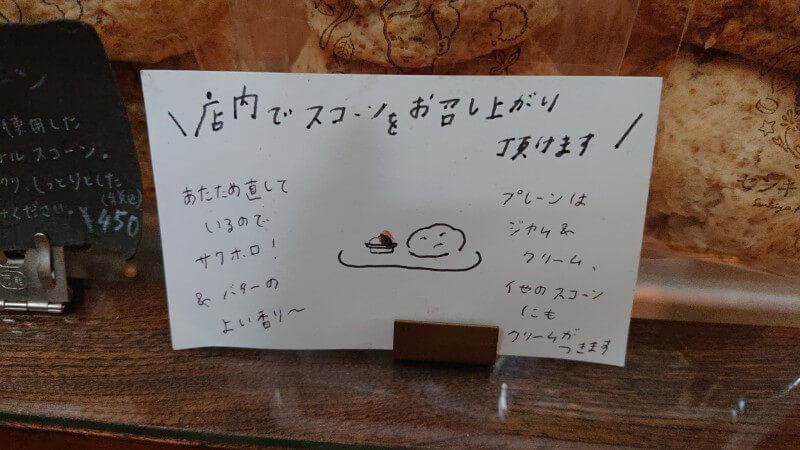 \店内でスコーンをお召し上がり
頂けます/
あたため直して
いるので
サクホロ!
& バターの
よい香り〜
プレーンは
ジャム&
クリーム、
イセのスコーン
にも
クリームが
つきます
使用した
ルスコーン。
しっとりとした
ください。
¥450